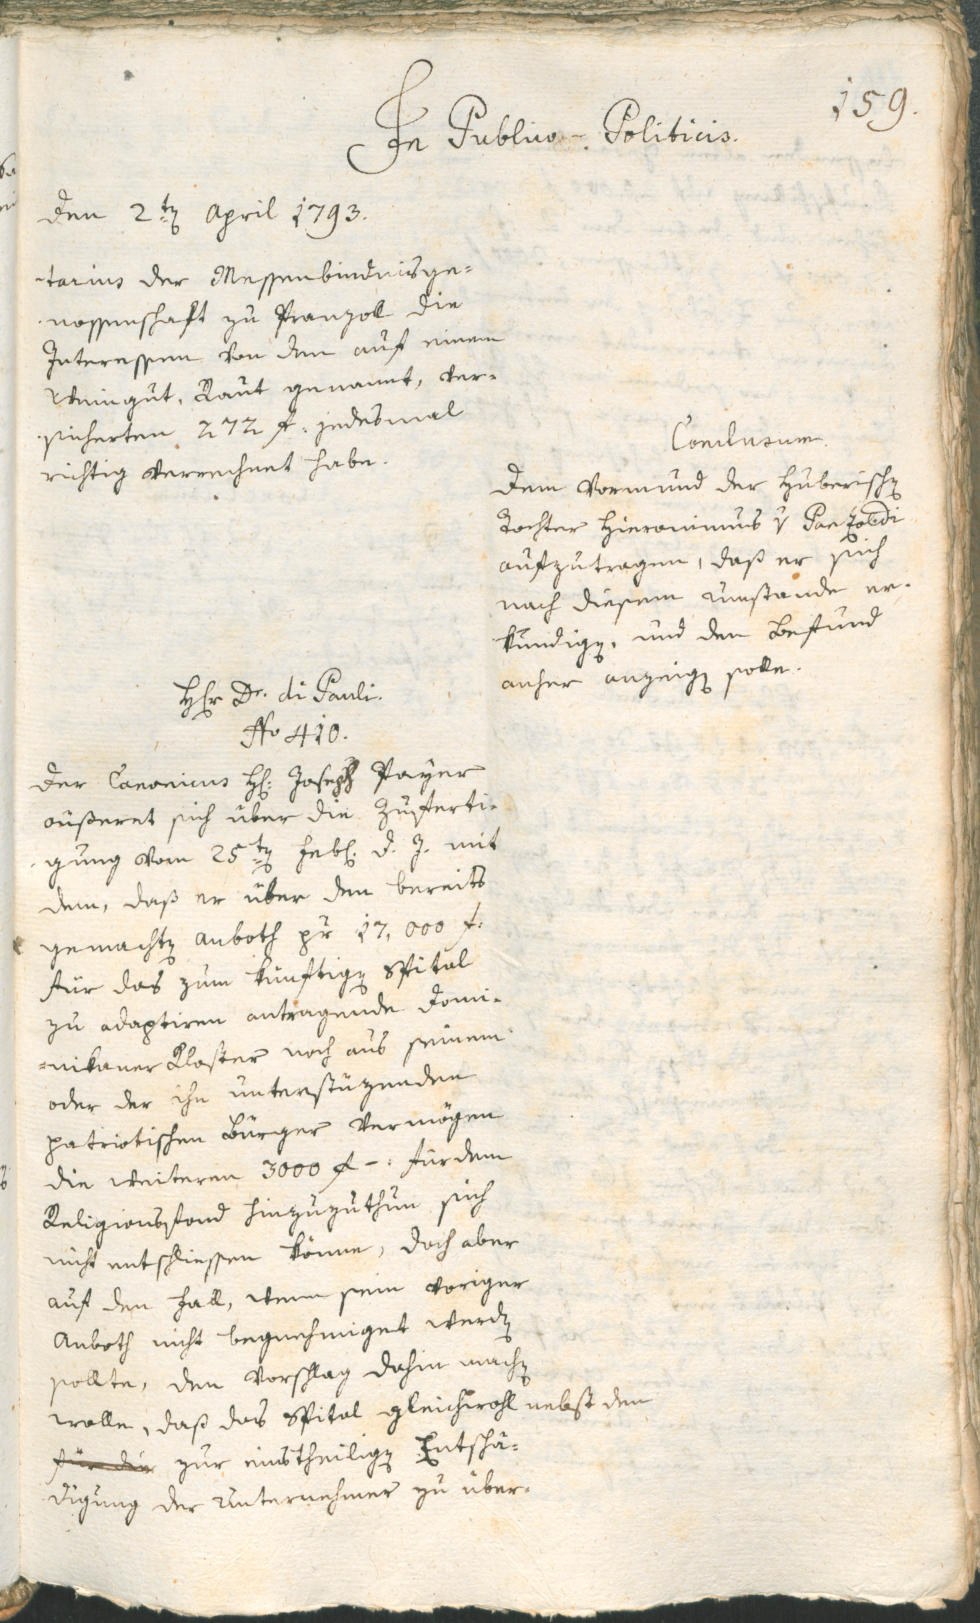 159.
In Publico-Politicis.
den 2ten April 1793.
-tarius der Messenbindnisge=
nossenschaft zu Pranzoll die
Interessen von den auf einem
Weingut, Raut genannt, ver-
sicherten 272 f. jedesmal
richtig verrechnet habe.
Conclusum.
Dem Vormund der Huberischen
Tochter Hieronimus
aufzutragen, daß er sich
nach diesem umstande er-
kundigen, und den Befund
anher anzeigen solle.
Hr Dr. di Pauli.
No 410.
Der Canonicus H: Joseph Payer
äußeret sich über die Zuferti-
gung vom 25ten Feb: d. J. mit
dem, daß er über den bereits
gemachten anboth pr 17,000 f.
für das zum künftigen Spital
zu adaptiren antragende Domi-
=nikaner Kloster noch aus seinem
oder der ihn unterstüzenden
patriotischen Bürger Vermögen
die weiteren 3000 f -: für dem
Religionsfond hinzuzuthun sich
nicht entschliessen könne, doch aber
auf den Fall, wenn sein voriger
Anboth nicht begnehmiget werden
sollte, den Vorschlag dahin machen
wolle, daß das Spital gleichwohl nebst den
für die zur einstheiligen Entschä-
digung der Unternehmer zu über-